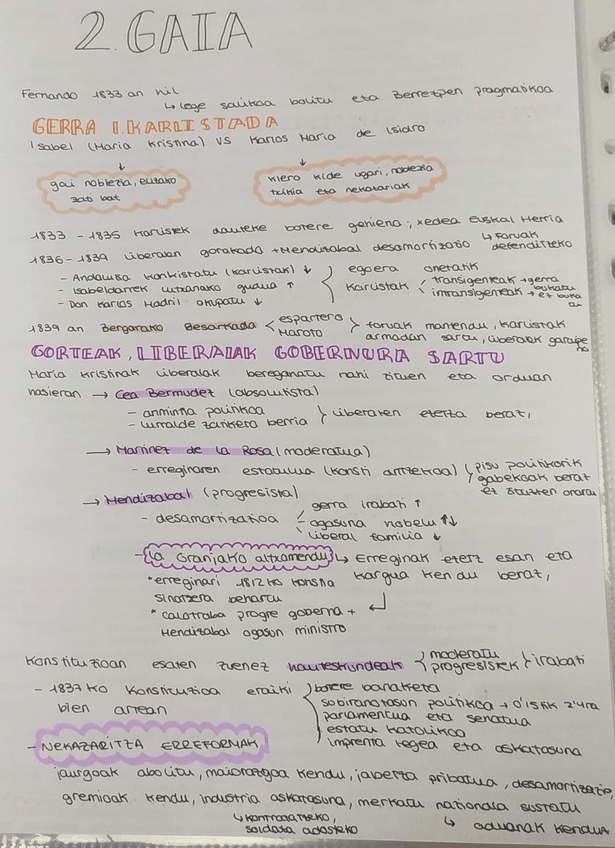 2. GAIA
Fernando 1833 an hil
↳ lege salikoa baliatu eta Berrezpen pragmatikoa
GERRA I. KARLISTADA
Isabel (Maria Kristina) VS Karlos Maria de Isidro
↓ ↓
goi noblezia, elizako zati bat
klero kide ugari, noblezia txikia eta nekazariak
1833 - 1835 Karlistek daukate botere gehiena; xedea Euskal Herria
↳ Foruak defenditzeko
1836 - 1839 liberalen gorakada + Mendizabal desamortizazio
- Andaluzia konkistatu (karlistak) ↓
- Isabeldarrek Lutxanako gudua ↑
- Don Karlos Madril okupatu ↓
egoera onetatik
Karlistak
transigenteak → gerra bukatu
intransigenteak → ez bukatu
1839 an Bergarako Besarkada
espartero
Maroto
foruak mantendu, karlistak armadan sartu, liberalek garaipena
GORTEAK, LIBERALAK GOBERNURA SARTU
Maria Kristinak liberalak bereganatu nahi zituen eta orduan
hasieran → Cea Bermudez (absolutista)
- amnistia politikoa
- lurralde zatiketa berria
liberalen ezetza berat,
→ Martinez de la Rosa (moderatua)
- erreginaren estatutua (konsti antzekoa)
pisu politikorik gabekoak berat ez zitzaten onartu
→ Mendizabal (progresista)
- desamortizazioa
gerra irabazi ↑
ogasuna hobetu ↑↓
liberal familia ↓
- La Granjako altxamendu ↳ Erreginak ezetz esan eta kargua kendu berat,
* erreginari 1812 ko konstia sinatzera behartu
* calatraba progre goberna + Mendizabal ogasun ministro
Konstituzioan esaten zuenez hauteskundeak
moderatu
progresistek
irabazi
- 1837 ko Konstituzioa eraiki bien artean
botere banaketa
subiranotasun politikoa → 0'15 tik 2'4ra
parlamentua eta senatua
estatu katolikoa
imprenta legea eta askatasuna
- NEKAZARITZA ERREFORMAK
jaurgoak abolitu, maiorazgoa kendu, jabetza pribatua, desamortizazio,
gremioak kendu, industria askatasuna, merkatu nationala sustatu
↳ kontratatzeko, soldata adosteko
↳ aduanak kendua